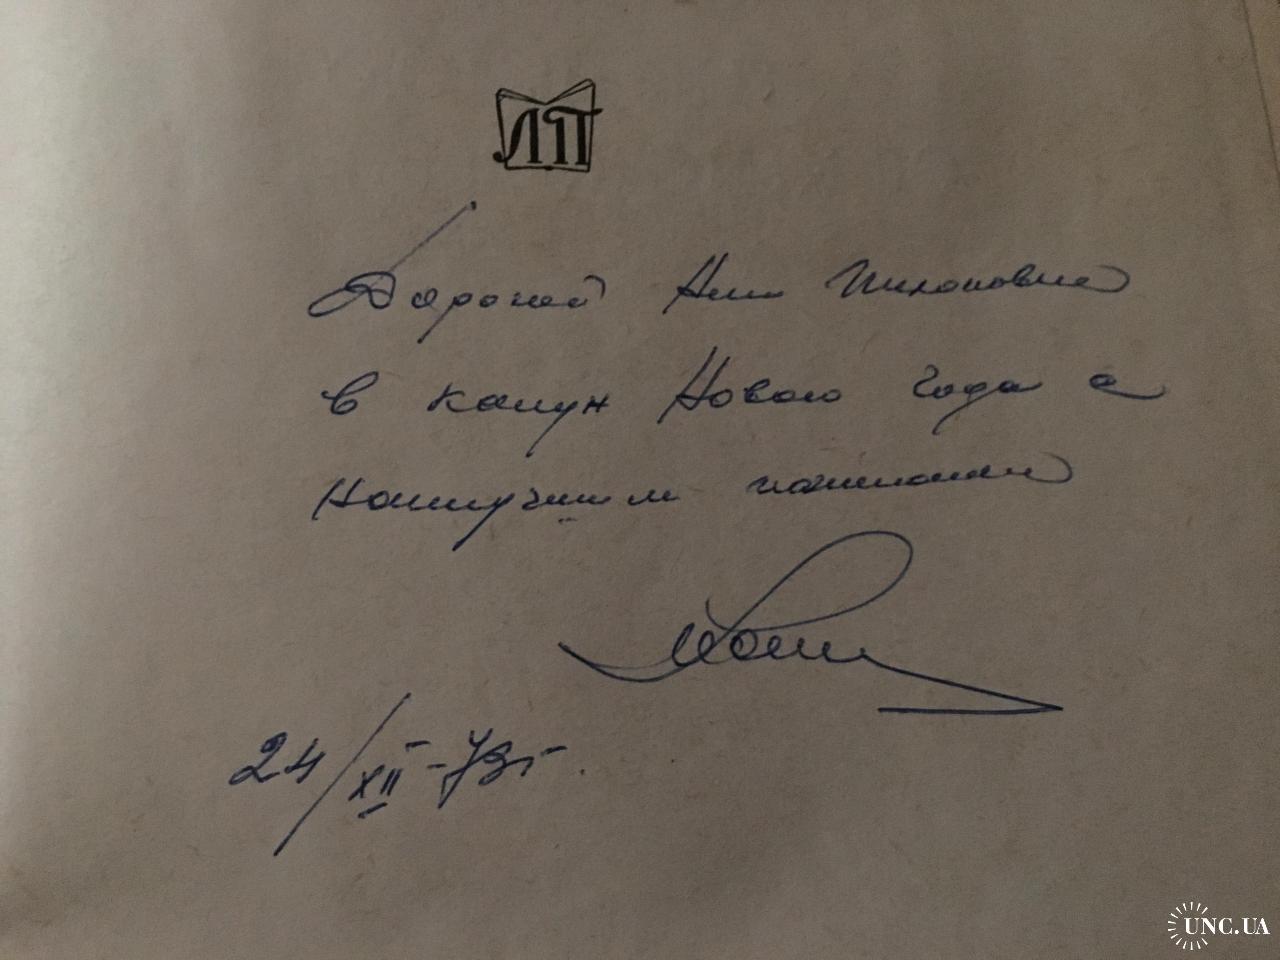 ЛП
Дорогой Нине Тихоновне
в канун Нового Года с
наилучшими пожеланиями
24/XII-73г.
UNC.UA